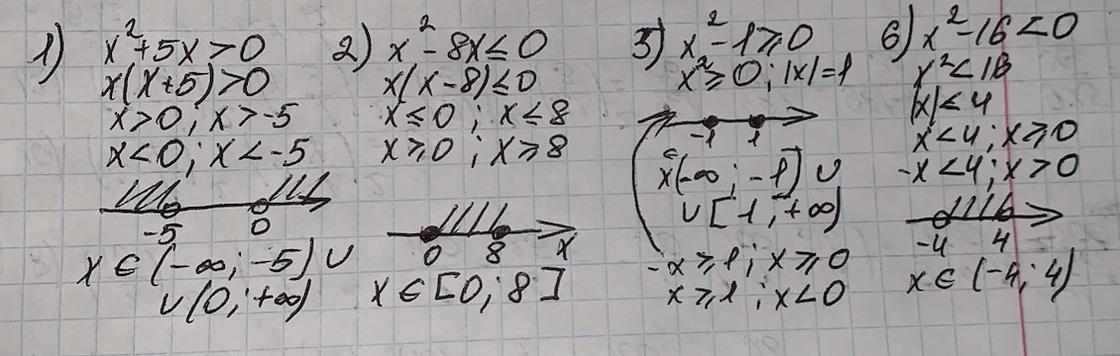 1) x²+5x>0
x(x+5)>0
x>0; x>-5
x<0; x<-5
-5 0
x ∈ (-∞; -5) ∪
∪ (0; +∞)
2) x²-8x≤0
x(x-8)≤0
x≤0; x≤8
x≥0; x≥8
0 8 x
x ∈ [0; 8]
3) x²-1≥0
x²≥0; |x|=1
-1 1
x(-∞; -1] ∪
∪ [1; +∞)
-x≥1; x≥0
x≥1; x<0
6) x²-16<0
x²<16
|x|<4
x<4; x≥0
-x<4; x>0
-4 4
x ∈ (-4; 4)